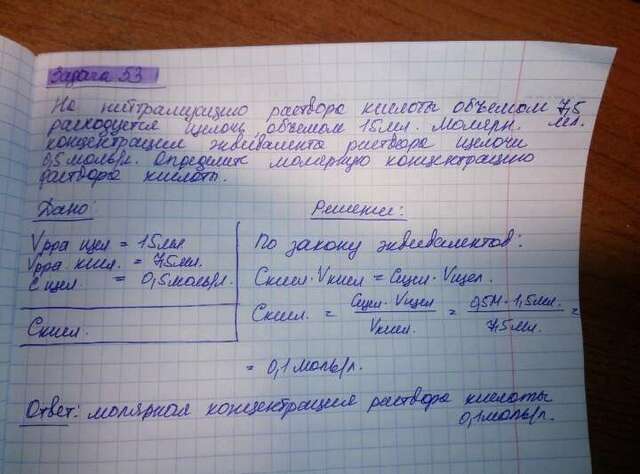 Задача 53
На нейтрализацию раствора кислоты объемом 7,5
расходуется щелочь объемом 15мл. Молярн. мл.
концентрация эквивалента раствора щелочи
0,5 моль/л. Определите молярную концентрацию
раствора кислоты.
Дано:
Vрра щел = 15мл
Vрра кисл. = 7,5мл.
C щел. = 0,5 моль/л.
Cкисл.
Решение:
По закону эквивалентов:
Cкисл. Vкисл = Cщел. Vщел.
Cкисл. = Cщел. Vщел / Vкисл. = 0,5М · 1,5мл. / 7,5мл. =
= 0,1 моль/л.
Ответ: молярная концентрация раствора кислоты
0,1моль/л.